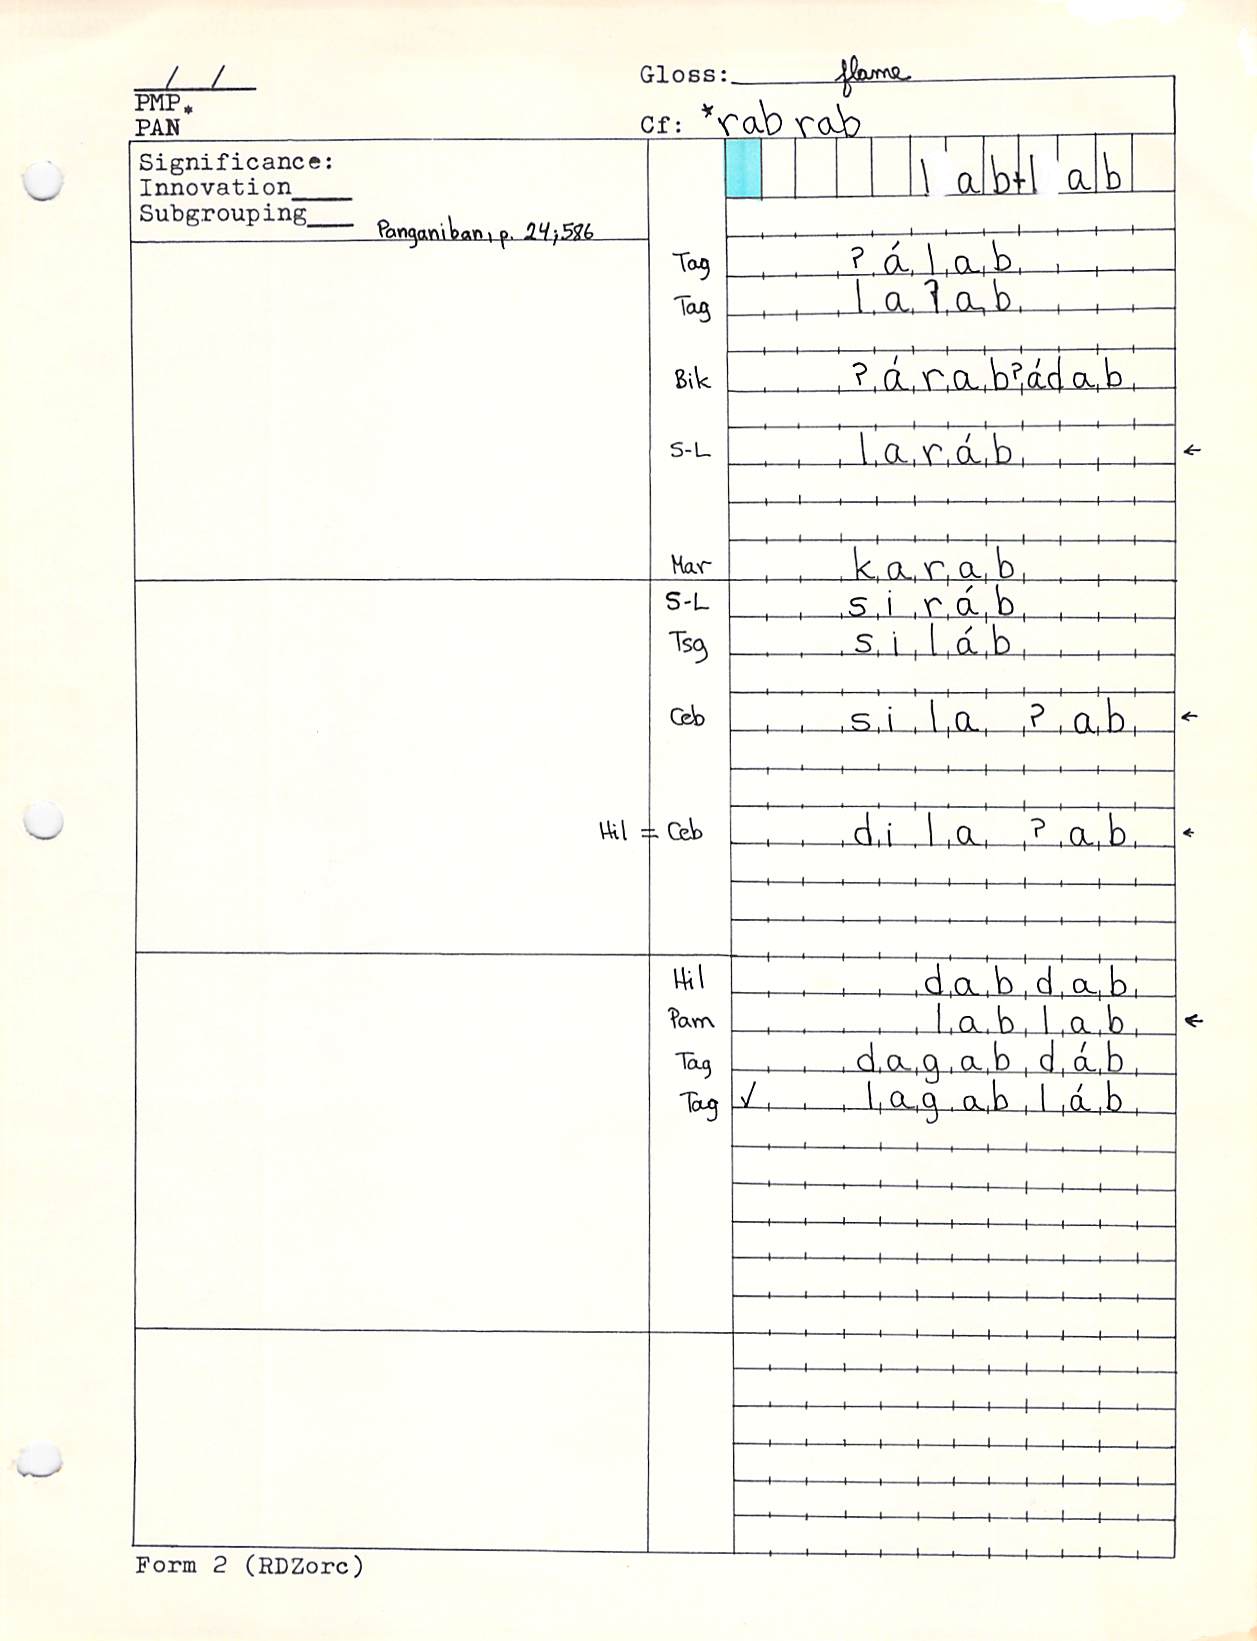 / /
Gloss: flame
PMP*
PAN
Cf: *rab rab
Significance:
Innovation
Subgrouping
lab+lab
Panganiban, p. 24;586
Tag ʔálab
Tag laʔab
Bik ʔárabʔádab
S-L laráb ←
Mar karab
S-L siráb
Tsg siláb
Ceb sila ʔab ←
Hil = Ceb dila ʔab ←
Hil dabdab
Pam lablab ←
Tag dagabdáb
Tag ✓ lagabláb
Form 2 (RDZorc)